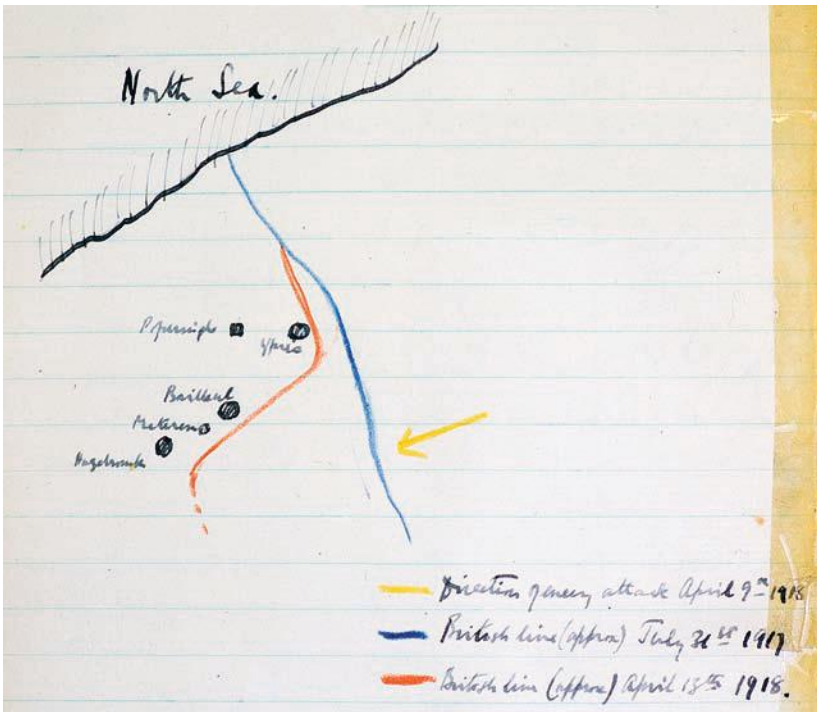 North Sea.
Ypres
Bailleul
Meteren
Hazebrouck
Direction of enemy attack April 9th 1918
British line (approx) July 31st 1917
British line (approx) April 18th 1918.